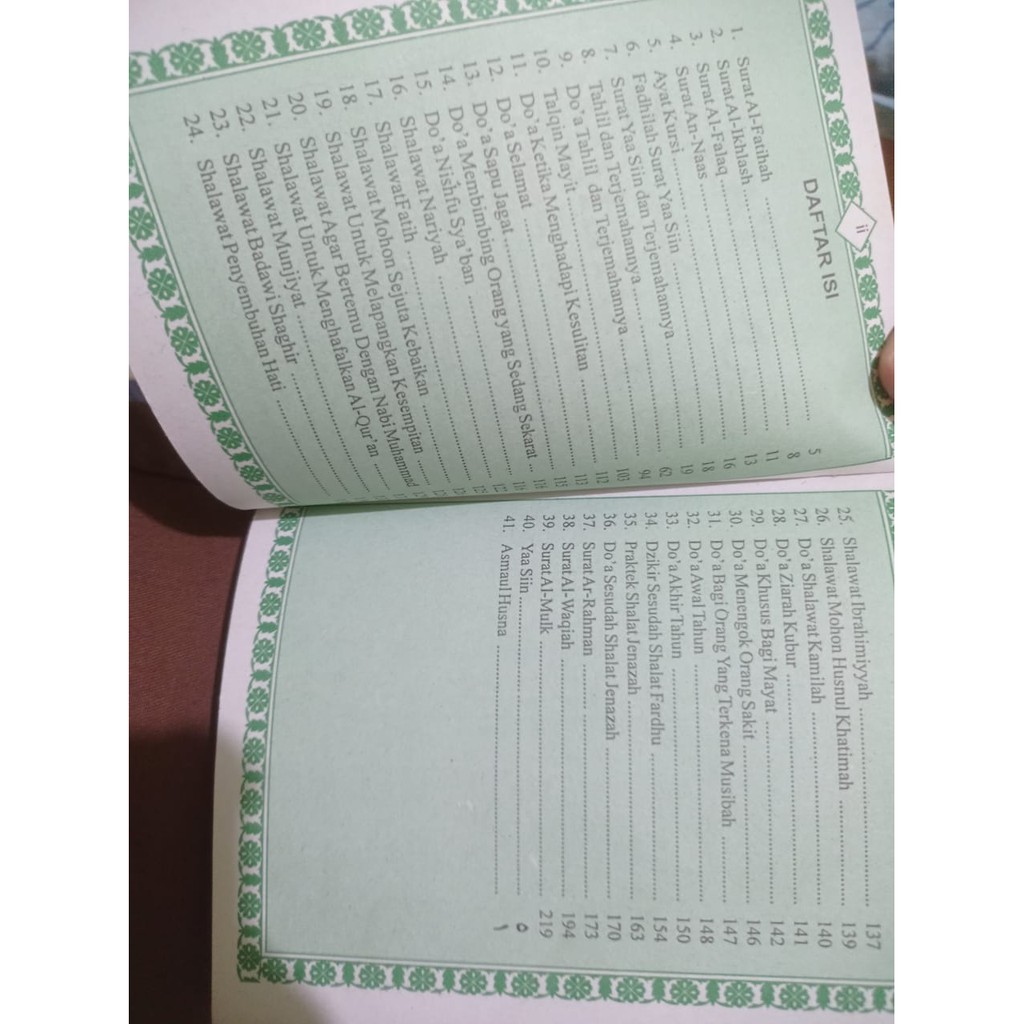 ii
DAFTAR ISI
1. Surat Al-Fatihah ........ 5
2. Surat Al-Ikhlash ........ 8
3. Surat Al-Falaq ........ 11
4. Surat An-Naas ........ 13
5. Ayat Kursi ........ 16
6. Fadhilah Surat Yaa Siin ........ 18
7. Surat Yaa Siin dan Terjemahannya ........ 19
8. Tahlil dan Terjemahannya ........ 62
9. Do'a Tahlil dan Terjemahannya ........ 94
10. Talqin Mayit ........ 103
11. Do'a Ketika Menghadapi Kesulitan ........ 112
12. Do'a Selamat ........ 113
13. Do'a Sapu Jagat ........ 115
14. Do'a Membimbing Orang yang Sedang Sekarat ...
15. Do'a Nishfu Sya'ban ........
16. Shalawat Nariyah ........
17. Shalawat Fatih ........
18. Shalawat Mohon Sejuta Kebaikan ........
19. Shalawat Untuk Melapangkan Kesempitan ........
20. Shalawat Agar Bertemu Dengan Nabi Muhammad
21. Shalawat Untuk Menghafalkan Al-Qur'an ........
22. Shalawat Munjiyat ........
23. Shalawat Badawi Shaghir ........
24. Shalawat Penyembuhan Hati ........
25. Shalawat Ibrahimiyyah ........ 137
26. Shalawat Mohon Husnul Khatimah ........ 139
27. Do'a Shalawat Kamilah ........ 140
28. Do'a Ziarah Kubur ........ 141
29. Do'a Khusus Bagi Mayat ........ 142
30. Do'a Menengok Orang Sakit ........ 146
31. Do'a Bagi Orang Yang Terkena Musibah ........ 147
32. Do'a Awal Tahun ........ 148
33. Do'a Akhir Tahun ........ 150
34. Dzikir Sesudah Shalat Fardhu ........ 154
35. Praktek Shalat Jenazah ........ 163
36. Do'a Sesudah Shalat Jenazah ........ 170
37. Surat Ar-Rahman ........ 173
38. Surat Al-Waqiah ........ 194
39. Surat Al-Mulk ........ 219
40. Yaa Siin ........ ٥
41. Asmaul Husna ........ ١